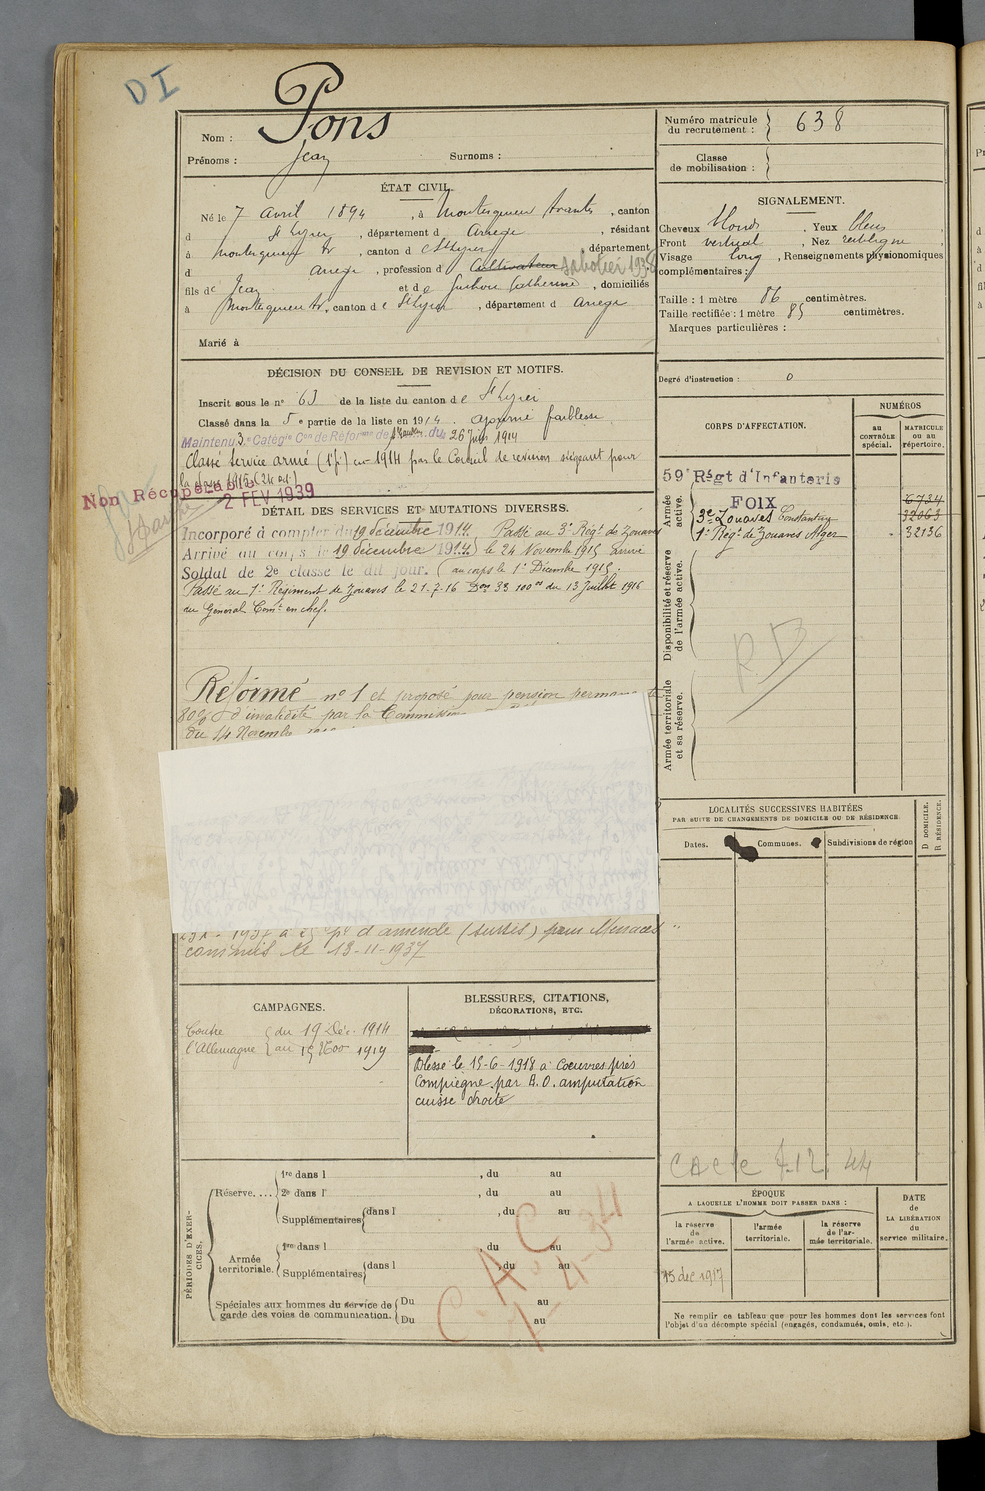 DI
Nom : Pons
Prénoms : Jean Surnoms :
ÉTAT CIVIL.
Né le 7 avril 1894, à Montesquieu Avantès, canton
d St Lizier, département d Ariège, résidant
à Montesquieu Av, canton d e St Lizier, département
d Ariège, profession d Cultivateur Sabotier 1938
fils de Jean et de Catherine, domiciliés
à Montesquieu Av, canton d e St Lizier, département d Ariège
Marié à
DÉCISION DU CONSEIL DE REVISION ET MOTIFS.
Inscrit sous le n° 63 de la liste du canton d e St Lizier
Classé dans la 5e partie de la liste en 1914. ajourné faiblesse
Maintenu 3e Catégie Con de Réforme de du 26 Juin 1914
Classé Service armé (1 p.) en 1914 par le Conseil de revision siégeant pour
la classe 1915 (24 oct)
Non Récupérable
2 FEV 1939
DÉTAIL DES SERVICES ET MUTATIONS DIVERSES.
Incorporé à compter du 19 décembre 1914. Passé au 3e Régt de Zouaves
Arrivé au corps le 19 décembre 1914 le 24 Novembre 1915 Arrivé
Soldat de 2e classe le dit jour. (au corps le 1er Décembre 1915.
Passé au 1er Régiment de Zouaves le 21-7-16 Don 33 100 du 13 Juillet 1916
du Général Comt en chef.
Réformé n° 1 et proposé pour pension permanente
80% d'invalidité par la Commission
du 14 Novembre
1937 à 25 d'amende (sursis) pour Menaces
commis le 13-11-1937
CAMPAGNES.
Contre du 19 Déc. 1914
l'Allemagne au 15 Nov 1919
BLESSURES, CITATIONS,
DÉCORATIONS, ETC.
Blessé le 15-6-1918 à Coeuvres près
Compiègne par B.O. amputation
cuisse droite
PÉRIODES D'EXERCICES.
Réserve....
1re dans l , du au
2e dans l' , du au
Supplémentaires dans l , du au
Armée territoriale.
1re dans l , du au
Supplémentaires dans l , du au
Spéciales aux hommes du service de garde des voies de communication.
Du au
Du au
Numéro matricule du recrutement : 638
Classe de mobilisation :
SIGNALEMENT.
Cheveux blonds. Yeux bleus
Front vertical, Nez rectiligne,
Visage long, Renseignements physionomiques
complémentaires :
Taille : 1 mètre 86 centimètres.
Taille rectifiée : 1 mètre 85 centimètres.
Marques particulières :
Degré d'instruction : 0
CORPS D'AFFECTATION.
NUMÉROS
au CONTRÔLE spécial.
MATRICULE ou au répertoire.
Armée active.
59e Régt d'Infanterie
FOIX 6734
3e Zouaves Constantine 32063
1er Régt de Zouaves Alger 32136
Disponibilité et réserve de l'armée active.
Armée territoriale et sa réserve.
LOCALITÉS SUCCESSIVES HABITÉES
PAR SUITE DE CHANGEMENTS DE DOMICILE OU DE RÉSIDENCE.
Dates. Communes. Subdivisions de région
D DOMICILE. R RÉSIDENCE.
Carte 7.12.44
ÉPOQUE
A LAQUELLE L'HOMME DOIT PASSER DANS :
la réserve de l'armée active.
l'armée territoriale.
la réserve de l'armée territoriale.
DATE de LA LIBÉRATION du service militaire.
15 dec 1917
Ne remplir ce tableau que pour les hommes dont les services font
l'objet d'un décompte spécial (engagés, condamnés, omis, etc.).